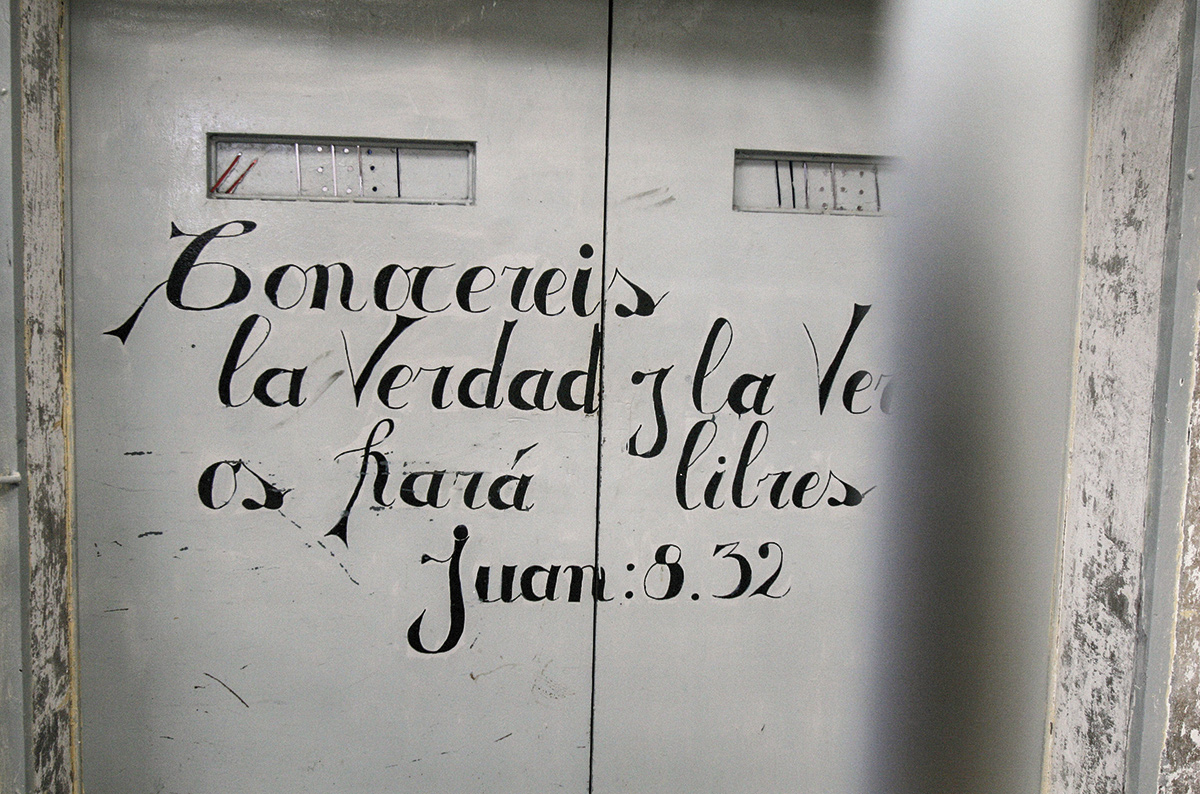 Conocereis
la Verdad y la Ver
os hará libres
Juan:8.32